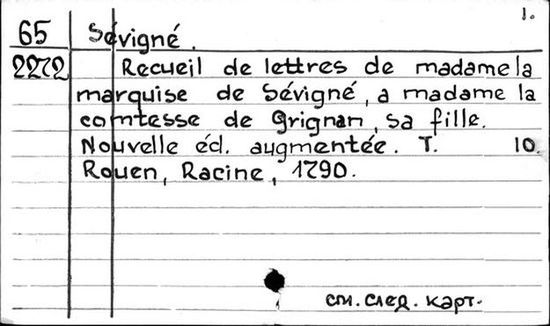 1.
65 Sévigné.
2272 Recueil de lettres de madame la
marquise de Sévigné, a madame la
comtesse de Grignan, sa fille.
Nouvelle éd. augmentée. T. 10.
Rouen, Racine, 1790.
см. след. карт.